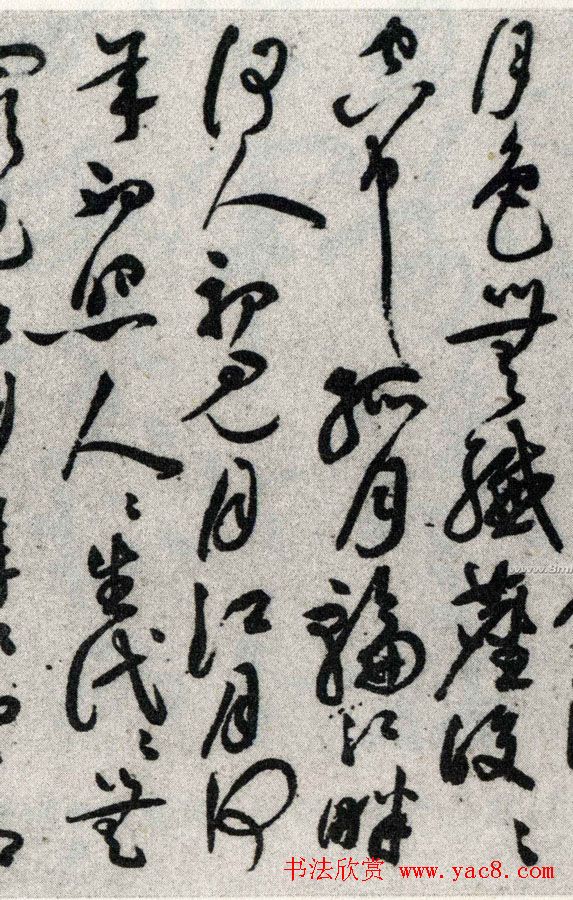 月色無纖塵皎〻
空中孤月輪江畔
何人初見月江月何
年初照人〻生代〻無
窮已江月年〻
书法欣赏 www.yac8.com